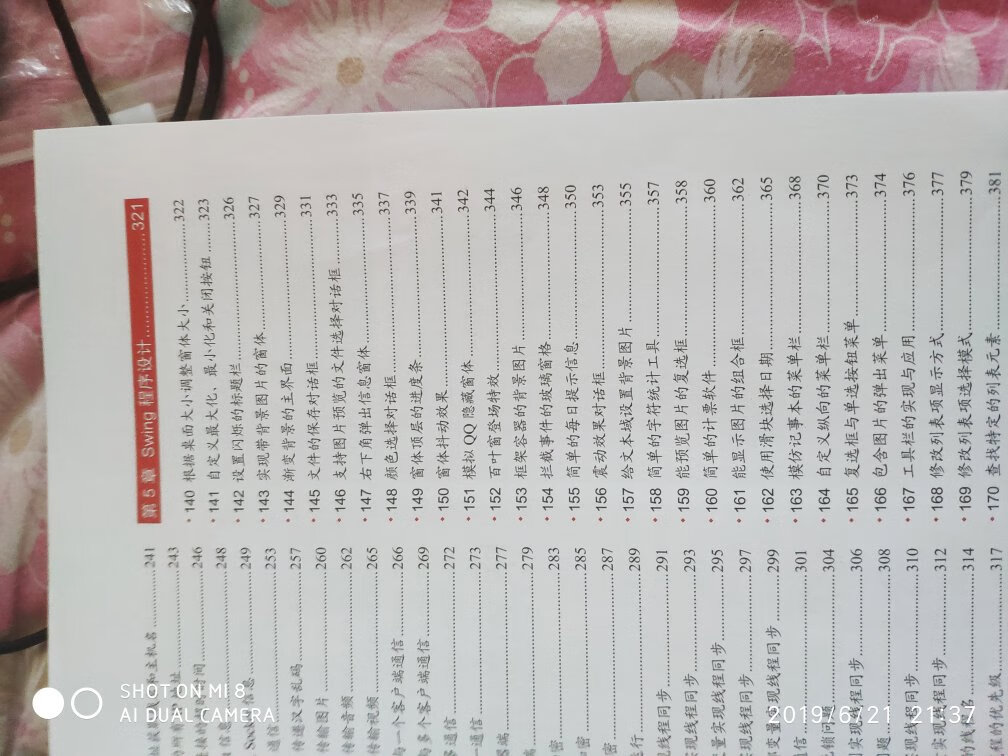 和主机名 241
址 243
时间 246
信息 248
信息 249
通信 253
传递汉字乱码 257
传输图片 260
传输音频 262
传输视频 265
一个客户端通信 266
多个客户端通信 269
通信 272
一通信 273
器端 277
端 279
密 283
密 285
密 287
行 289
线程同步 291
实现线程同步 293
量实现线程同步 295
现线程同步 297
变量实现线程同步 299
信 301
304
实现线程同步 306
题 308
线程同步 310
实现线程同步 312
314
优先级 317
第 5 章 Swing 程序设计 321
• 140 根据桌面大小调整窗体大小 322
• 141 自定义最大化、最小化和关闭按钮 323
• 142 设置闪烁的标题栏 326
• 143 实现带背景图片的窗体 327
• 144 渐变背景的主界面 329
• 145 文件的保存对话框 331
• 146 支持图片预览的文件选择对话框 333
• 147 右下角弹出信息窗体 335
• 148 颜色选择对话框 337
• 149 窗体顶层的进度条 339
• 150 窗体抖动效果 341
• 151 模拟 QQ 隐藏窗体 342
• 152 百叶窗登场特效 344
• 153 框架容器的背景图片 346
• 154 拦截事件的玻璃窗格 348
• 155 简单的每日提示信息 350
• 156 震动效果对话框 353
• 157 给文本域设置背景图片 355
• 158 简单的字符统计工具 357
• 159 能预览图片的复选框 358
• 160 简单的计票软件 360
• 161 能显示图片的组合框 362
• 162 使用滑块选择日期 365
• 163 模仿记事本的菜单栏 368
• 164 自定义纵向的菜单栏 370
• 165 复选框与单选按钮菜单 373
• 166 包含图片的弹出菜单 374
• 167 工具栏的实现与应用 376
• 168 修改列表项显示方式 377
• 169 修改列表项选择模式 379
• 170 查找特定的列表元素 381
SHOT ON MI 8
AI DUAL CAMERA
2019/6/21 21:37